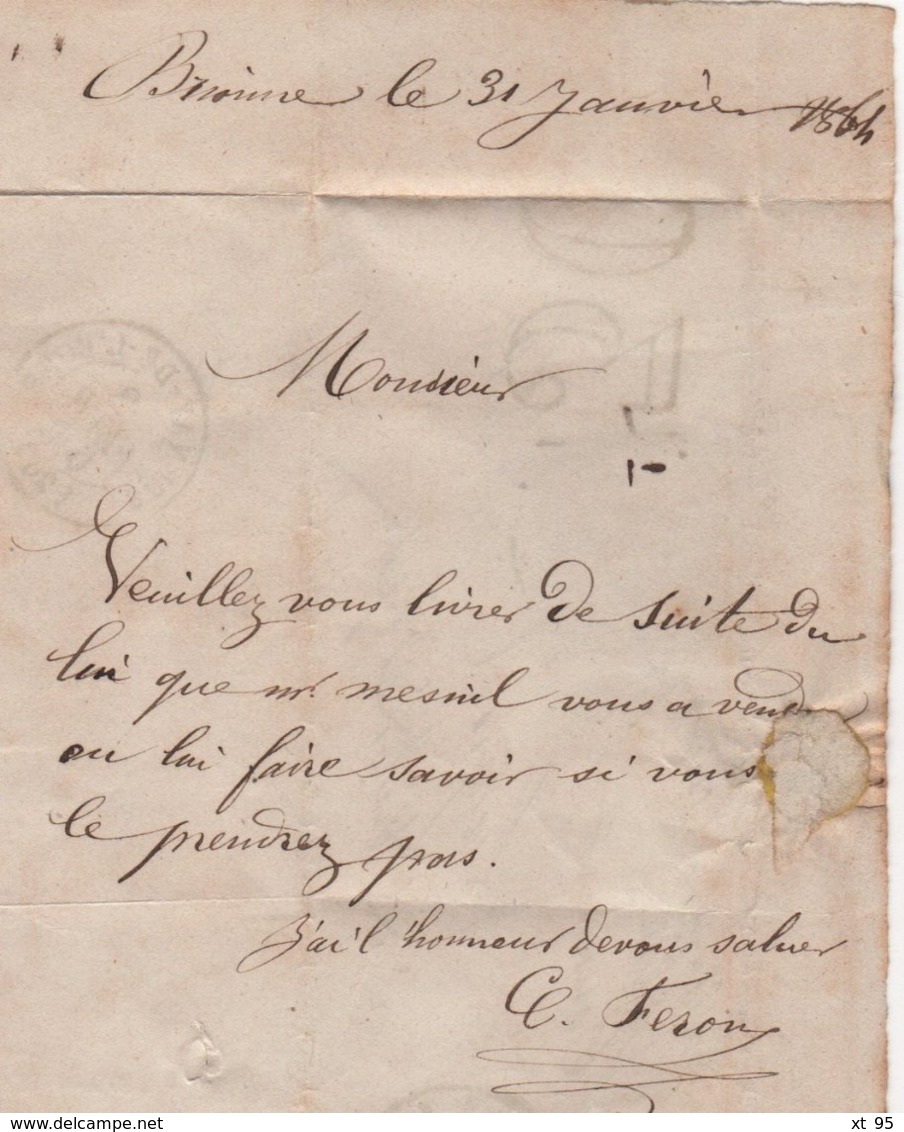 Brionne le 31 Janvier 1864
Monsieur
Veuillez vous livrer de suite du
lin que mr. mesnil vous a vendu
ou lui faire savoir si vous
le prendrez pas.
J'ai l'honneur de vous saluer
C. Feron
xt 95